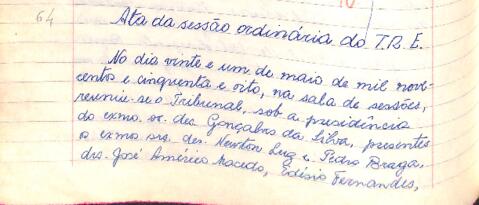 64
Ata da sessão ordinária do T.R.E.
No dia vinte e um de maio de mil nove-
centos e cinquenta e oito, na sala de sessões,
reuniu-se o Tribunal, sob a presidência
do exmo. sr. des. Gonçalves da Silva, presentes
o exmo srs. des. Newton Luz e Pedro Braga,
drs. José Américo Macedo, Edísio Fernandes,